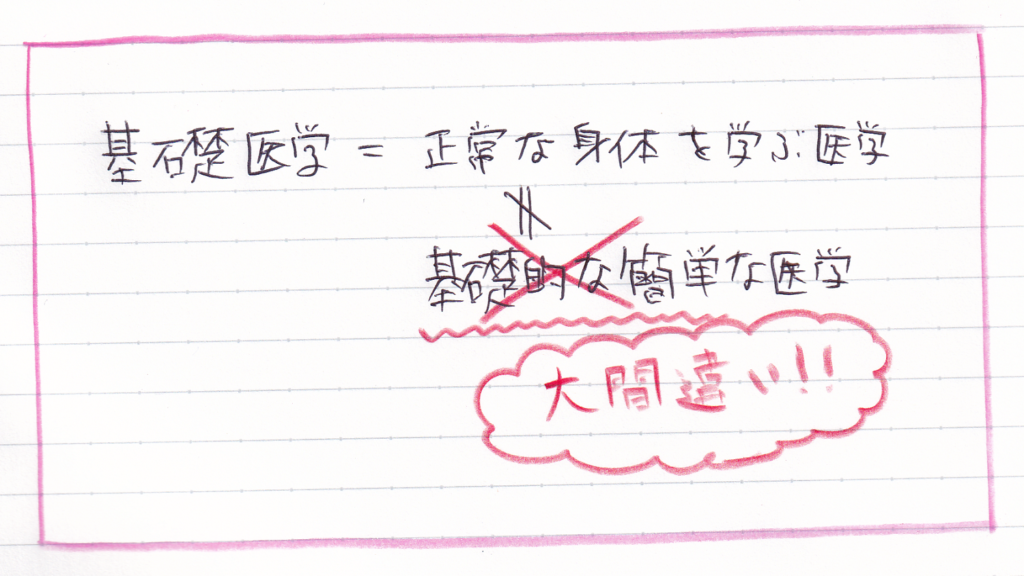 基礎医学 = 正常な身体を学ぶ医学
≠
基礎的な簡単な医学
大間違い!!